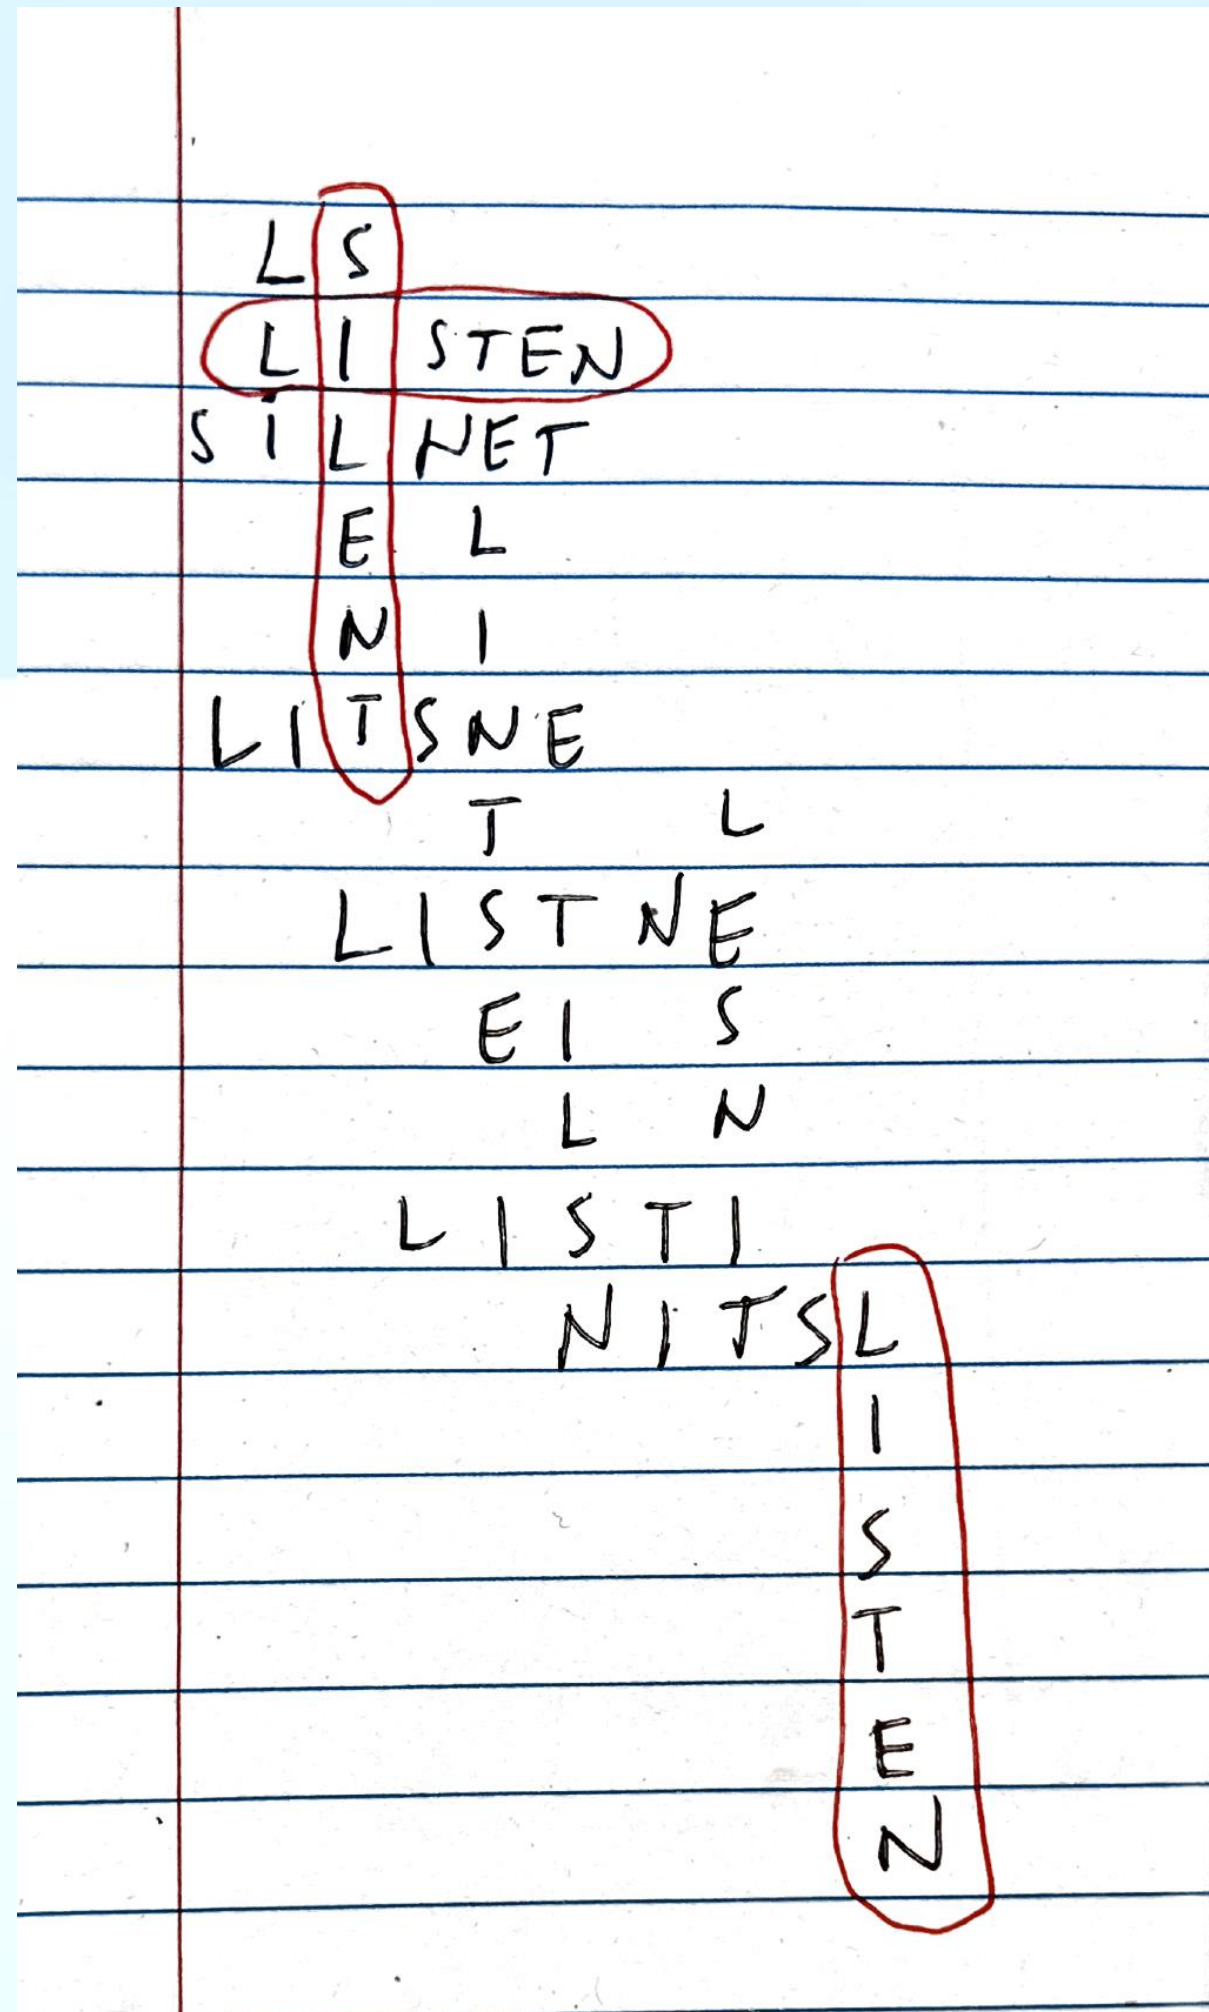 L S
L I STEN
S I L NET
E L
N I
L I T S N E
T L
L I S T N E
E I S
L N
L I S T I
N I T S L
I
S
T
E
N